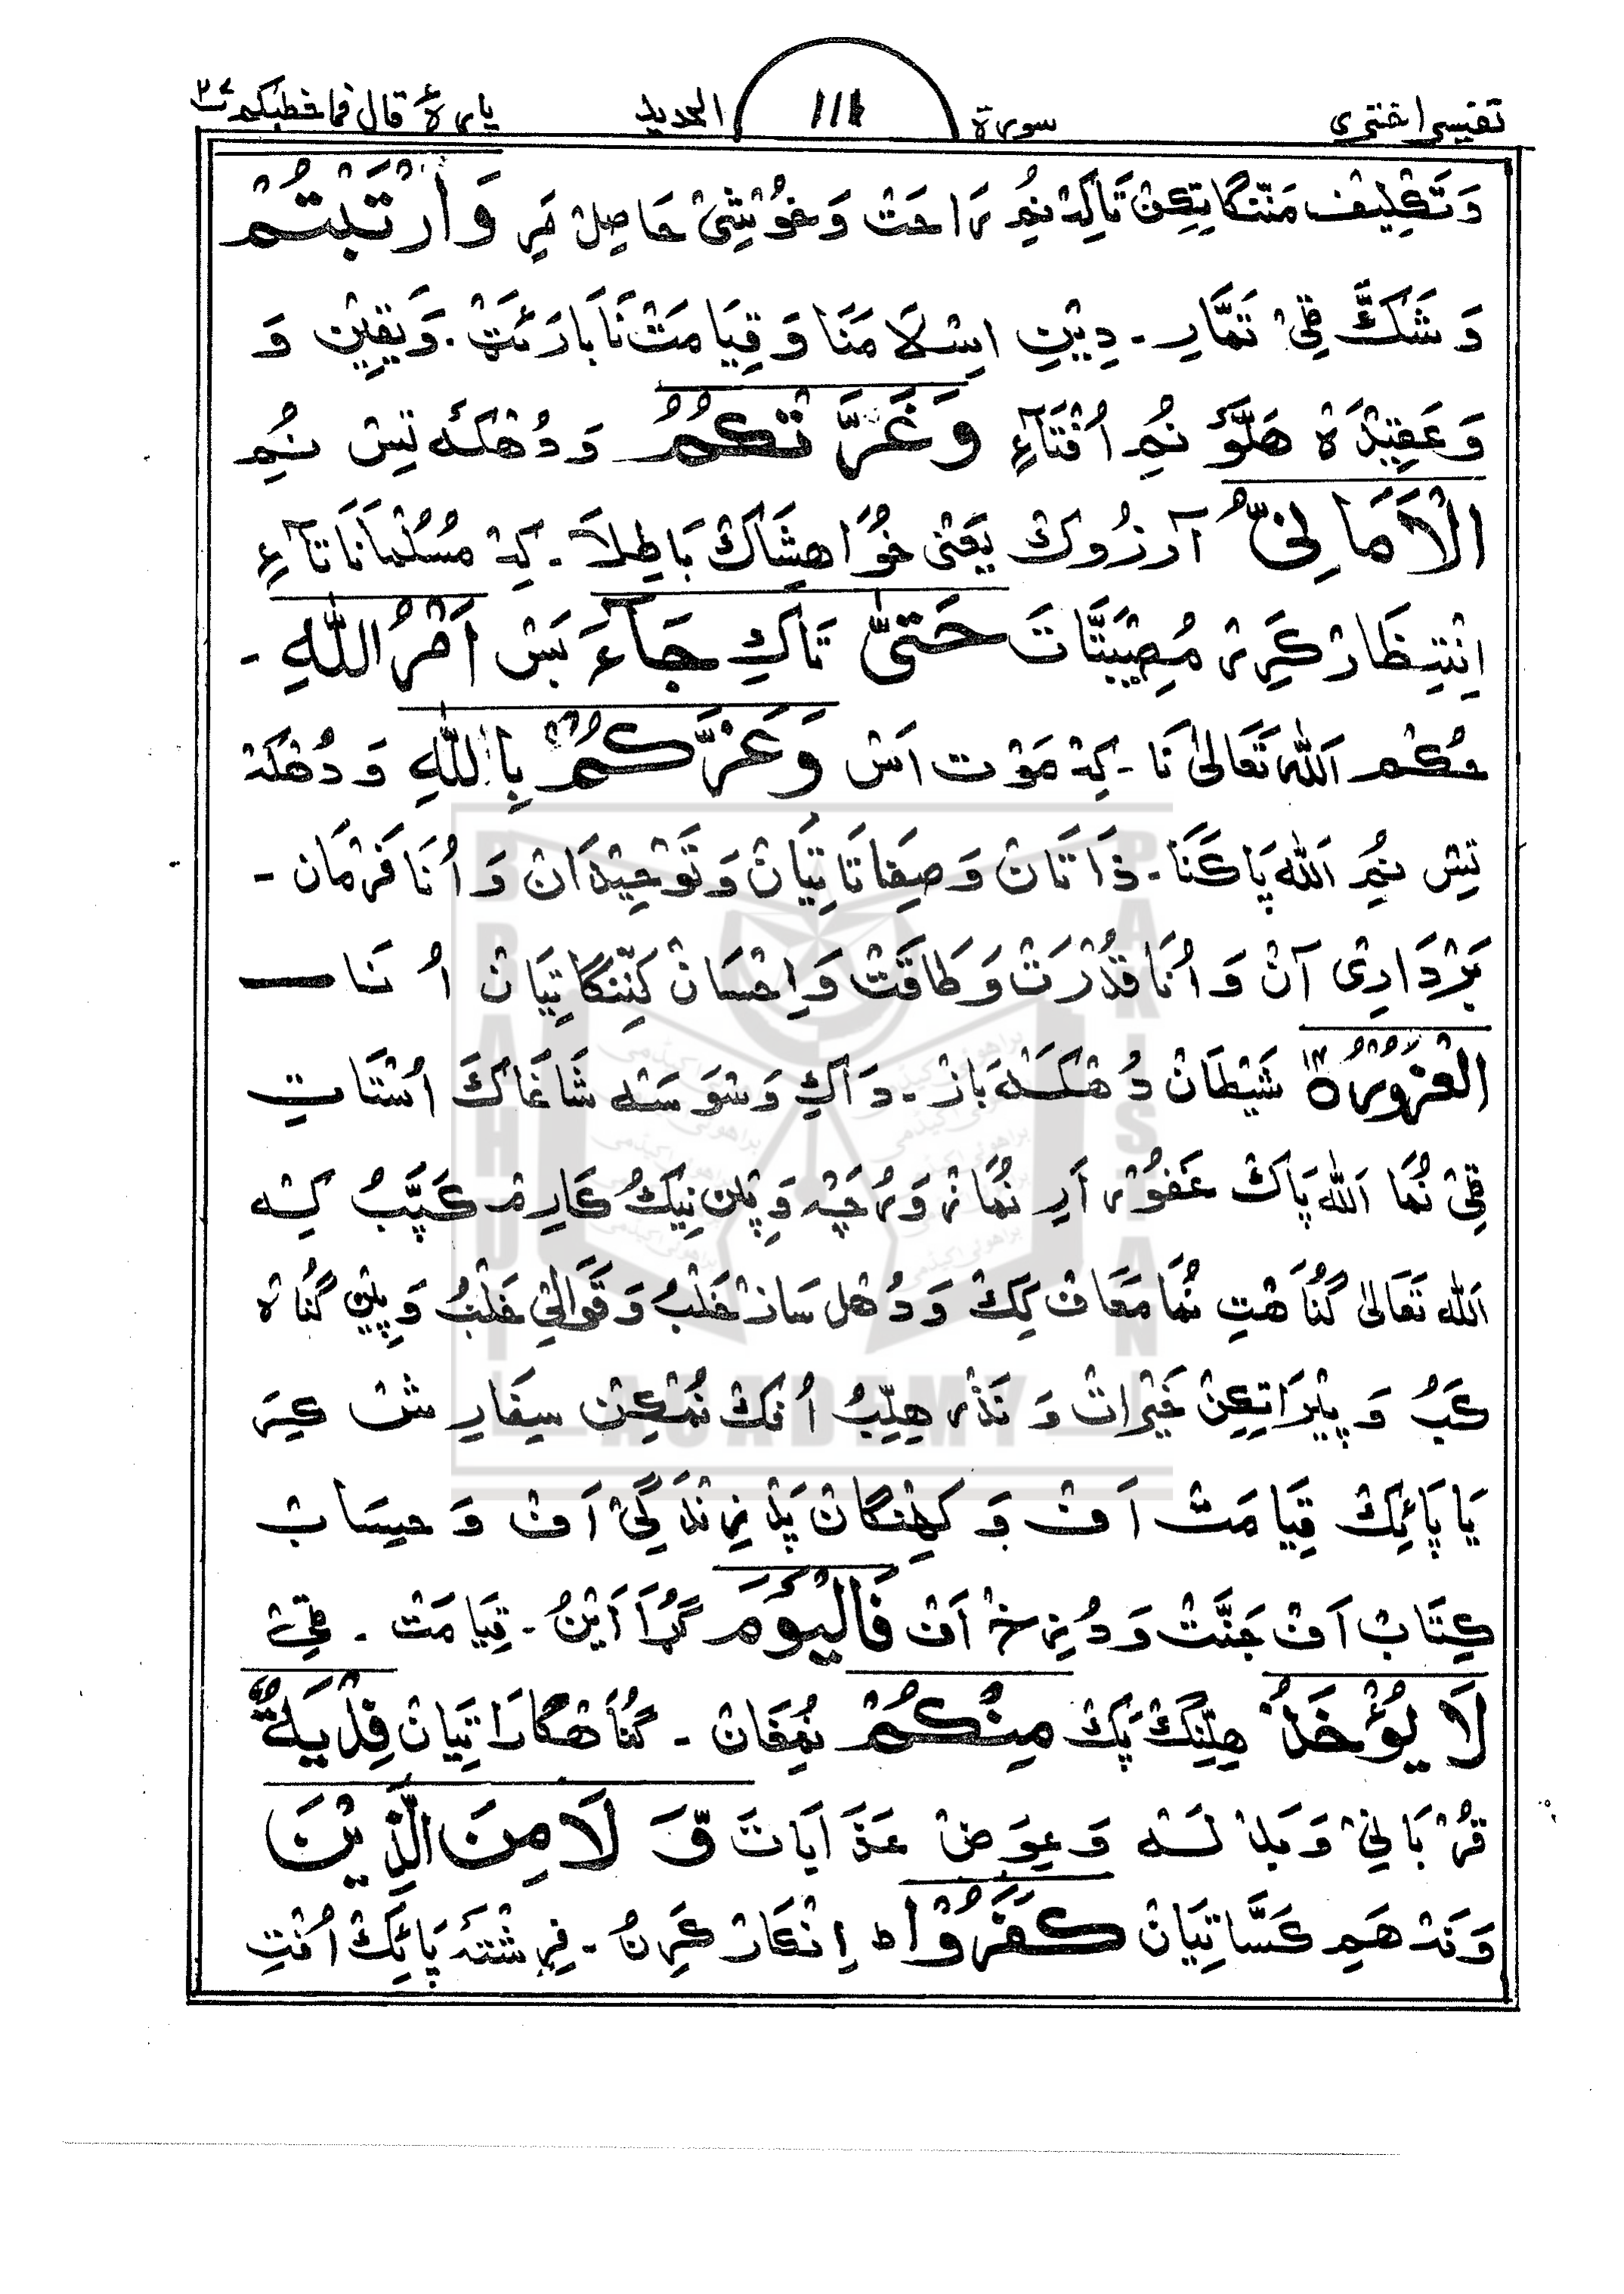 تفیسی اختری سورة ١١١ الحدید پارہ قال فما خطبکم ٢٧
وَ تَکْلِیْف مَنِّنْگَاتِکِنْ تَاکِہْ نُمِ رَاحَتْ وَ خُوْشِیْ حَاصِلْ مَرِ وَارْتَبْتُمْ
وَ شَکَّ ٹِیْ تَمَّارِ ۔ دِیْنِ اِسْلَامَنَا وَ قِیَامَتْ نَا بَارَئَتْ ۔ وَ یَقِیْن وَ
وَ عَقِیْدَہ هَلَّوْ نُمِ اُفْتَآءِ وَغَرَّتْکُمُ وَ دُهْکَہ تِسْ نُمِ
الْاَمَانِیُّ آرزُوکْ یَعْنِیْ خُوَاهِشَاکْ بَاطِلَا ۔ کِہْ مُسُلْمَانَاتَآءِ
اِنْتِظَارْ کَرِرْ مُصِیْبَتَّاتَ حَتّٰی تَاکِ جَآءَ بَسْ اَمْرُ اللّٰہِ ۔
حُکْم اَللّٰہ تَعَالیٰ نَا ۔ کِہْ مَوْت اَسْ وَ غَرَّکُمْ بِاللّٰہِ وَ دُهْکَہْ
تِسْ نُمِ اَللّٰہ پَاکَنَا ۔ ذَاتَانْ وَ صِفَاتَاتِیَانْ وَ تَوْحِیْدَانْ وَ اُنَا فَرْمَان ۔
بَرْدَارِیْ آنْ وَ اُنَا قُدْرَتْ وَ طَاقَتْ وَ اِحْسَانْ کَنِّنْگَاتِیَانْ اُ نَا
الْغَرُوْرُ ١٤ شَیْطَانْ دُهْکَہ بَازْ ۔ دَاکِ وَسْوَسَہ شَاغَاکَ اُسْتَاتِ
ٹِیْ نُمَا اَللّٰہ پَاکْ غَفُوْر اَرِ نُمَازْ وَ رُجَہْ وَ پِلن نِیْکُ کَارِمْ کَپَّبُ کِہ
اَللّٰہ تَعَالیٰ گُنَاهَتِ نُمَا مَعَاف کِکْ وَ دُهْل سَازْ خَلْبُ وَ قَوَّالِیْ خَلْبُ وَ پِیْن گُنَاہ
کَبُ وَ پِیْرَاتِکِنْ خَیْرَاتْ وَ نَذْر هِلِّبُ اُفْکْ نُمْکِنْ سِفَارِشْ کِرَ
یَا پَائِکْ قِیَامَتْ اَفْ وَ کَهِنْگَانْ پَدْ زِنْدَگِیْ اَفْ وَ حِسَابْ
کِتَابْ اَفْ جَنَّتْ وَ دُزِخْ اَفْ فَالْیَوْمَ گُڑَا اَیْنُ ۔ قِیَامَتْ ۔ ٹِیْ
لَا یُؤْخَذُ هِلِّنِکْ پَکْ مِنْکُمْ نُمِفَانْ ۔ گُنَاهْگَارَاتِیَانْ فِدْیَةٌ
قُرْبَانِیْ وَ بَدْلَسَہ وَ عِوَضْ عَذَابَاتَ وَّ لَا مِنَ الَّذِیْنَ
وَنَدْ هَمِ کَسَّاتِیَانْ کَفَرُوْا ط اِنْکَارْ کَرِنُ ۔ فِرِشْتَہ پَائِکْ اُفْتِ
BRAHUI ACADEMY PAKISTAN
براهوئی اکیڈمی